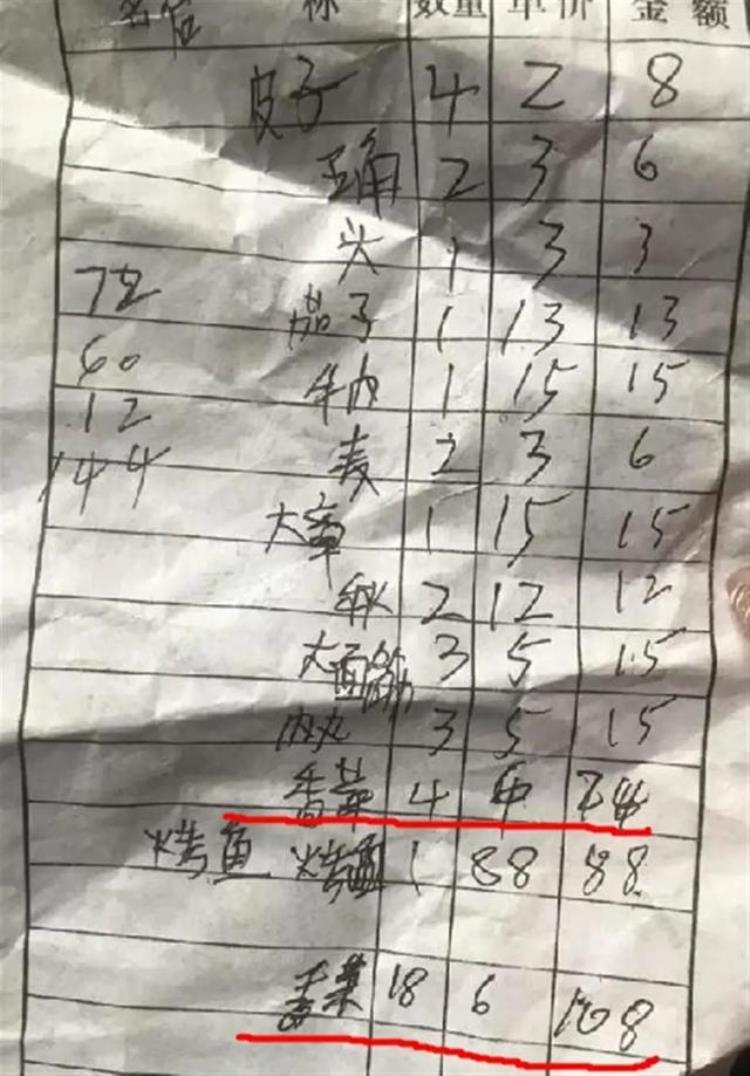 名 称 数量 单价 金额
皮子 4 2 8
玉角 2 3 6
头 1 3 3
72
茄子 1 13 13
60
牛肉 1 15 15
12
麦 2 3 6
144
大章 1 15 15
2 12 12
大面筋 3 5 15
肉丸 3 5 15
香菜 4 6 24
烤鱼 烤鱼 1 88 88
香菜 18 6 108